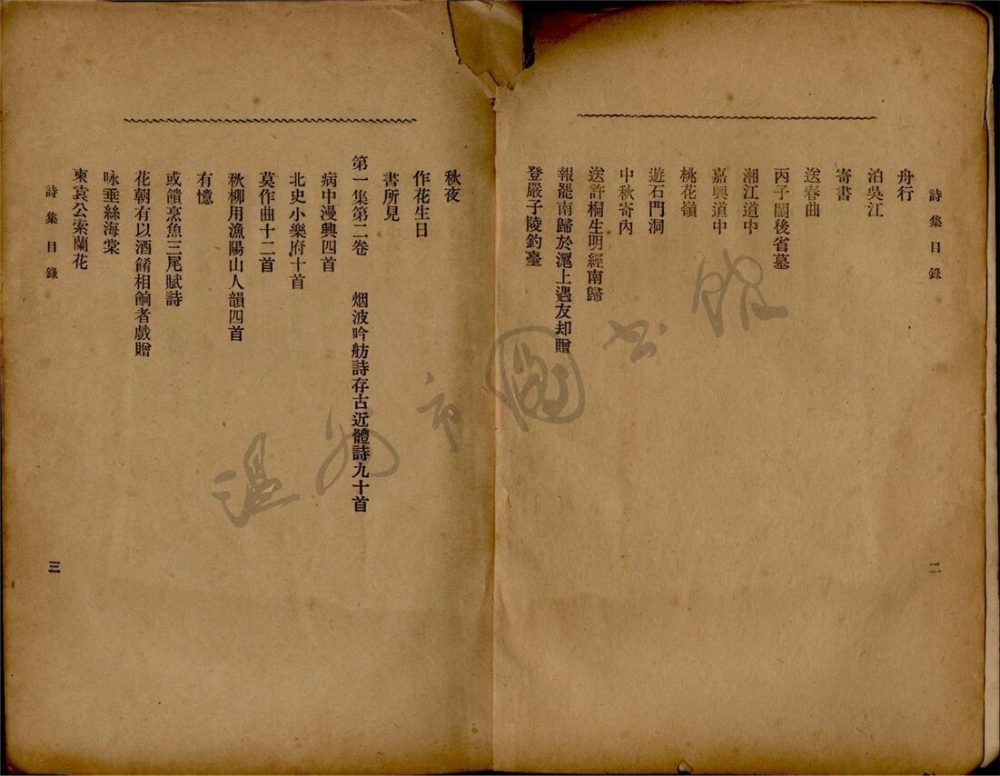 詩集目錄
二
舟行
泊吳江
寄書
送春曲
丙子闈後省墓
湘江道中
嘉興道中
桃花嶺
遊石門洞
中秋寄內
送許桐生明經南歸
報罷南歸於滬上遇友却贈
登嚴子陵釣臺
秋夜
作花生日
書所見
第一集第二卷 烟波吟舫詩存古近體詩九十首
病中漫興四首
北史小樂府十首
莫作曲十二首
秋柳用漁陽山人韻四首
有憶
或饋烹魚三尾賦詩
花朝有以酒餚相餉者戲贈
咏垂絲海棠
柬袁公索蘭花
詩集目錄
三
溫州市圖书館